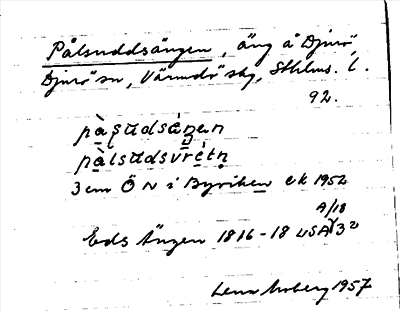 Pålsuddsängen, äng å Djurö
Djurö sn, Värmdö skg, Sthlms. l.
92.
3 cm Ö N i Byviken ek 1952
A/18
Eds Ängen 1816-18 LSA 3²
Lena Moberg 1957